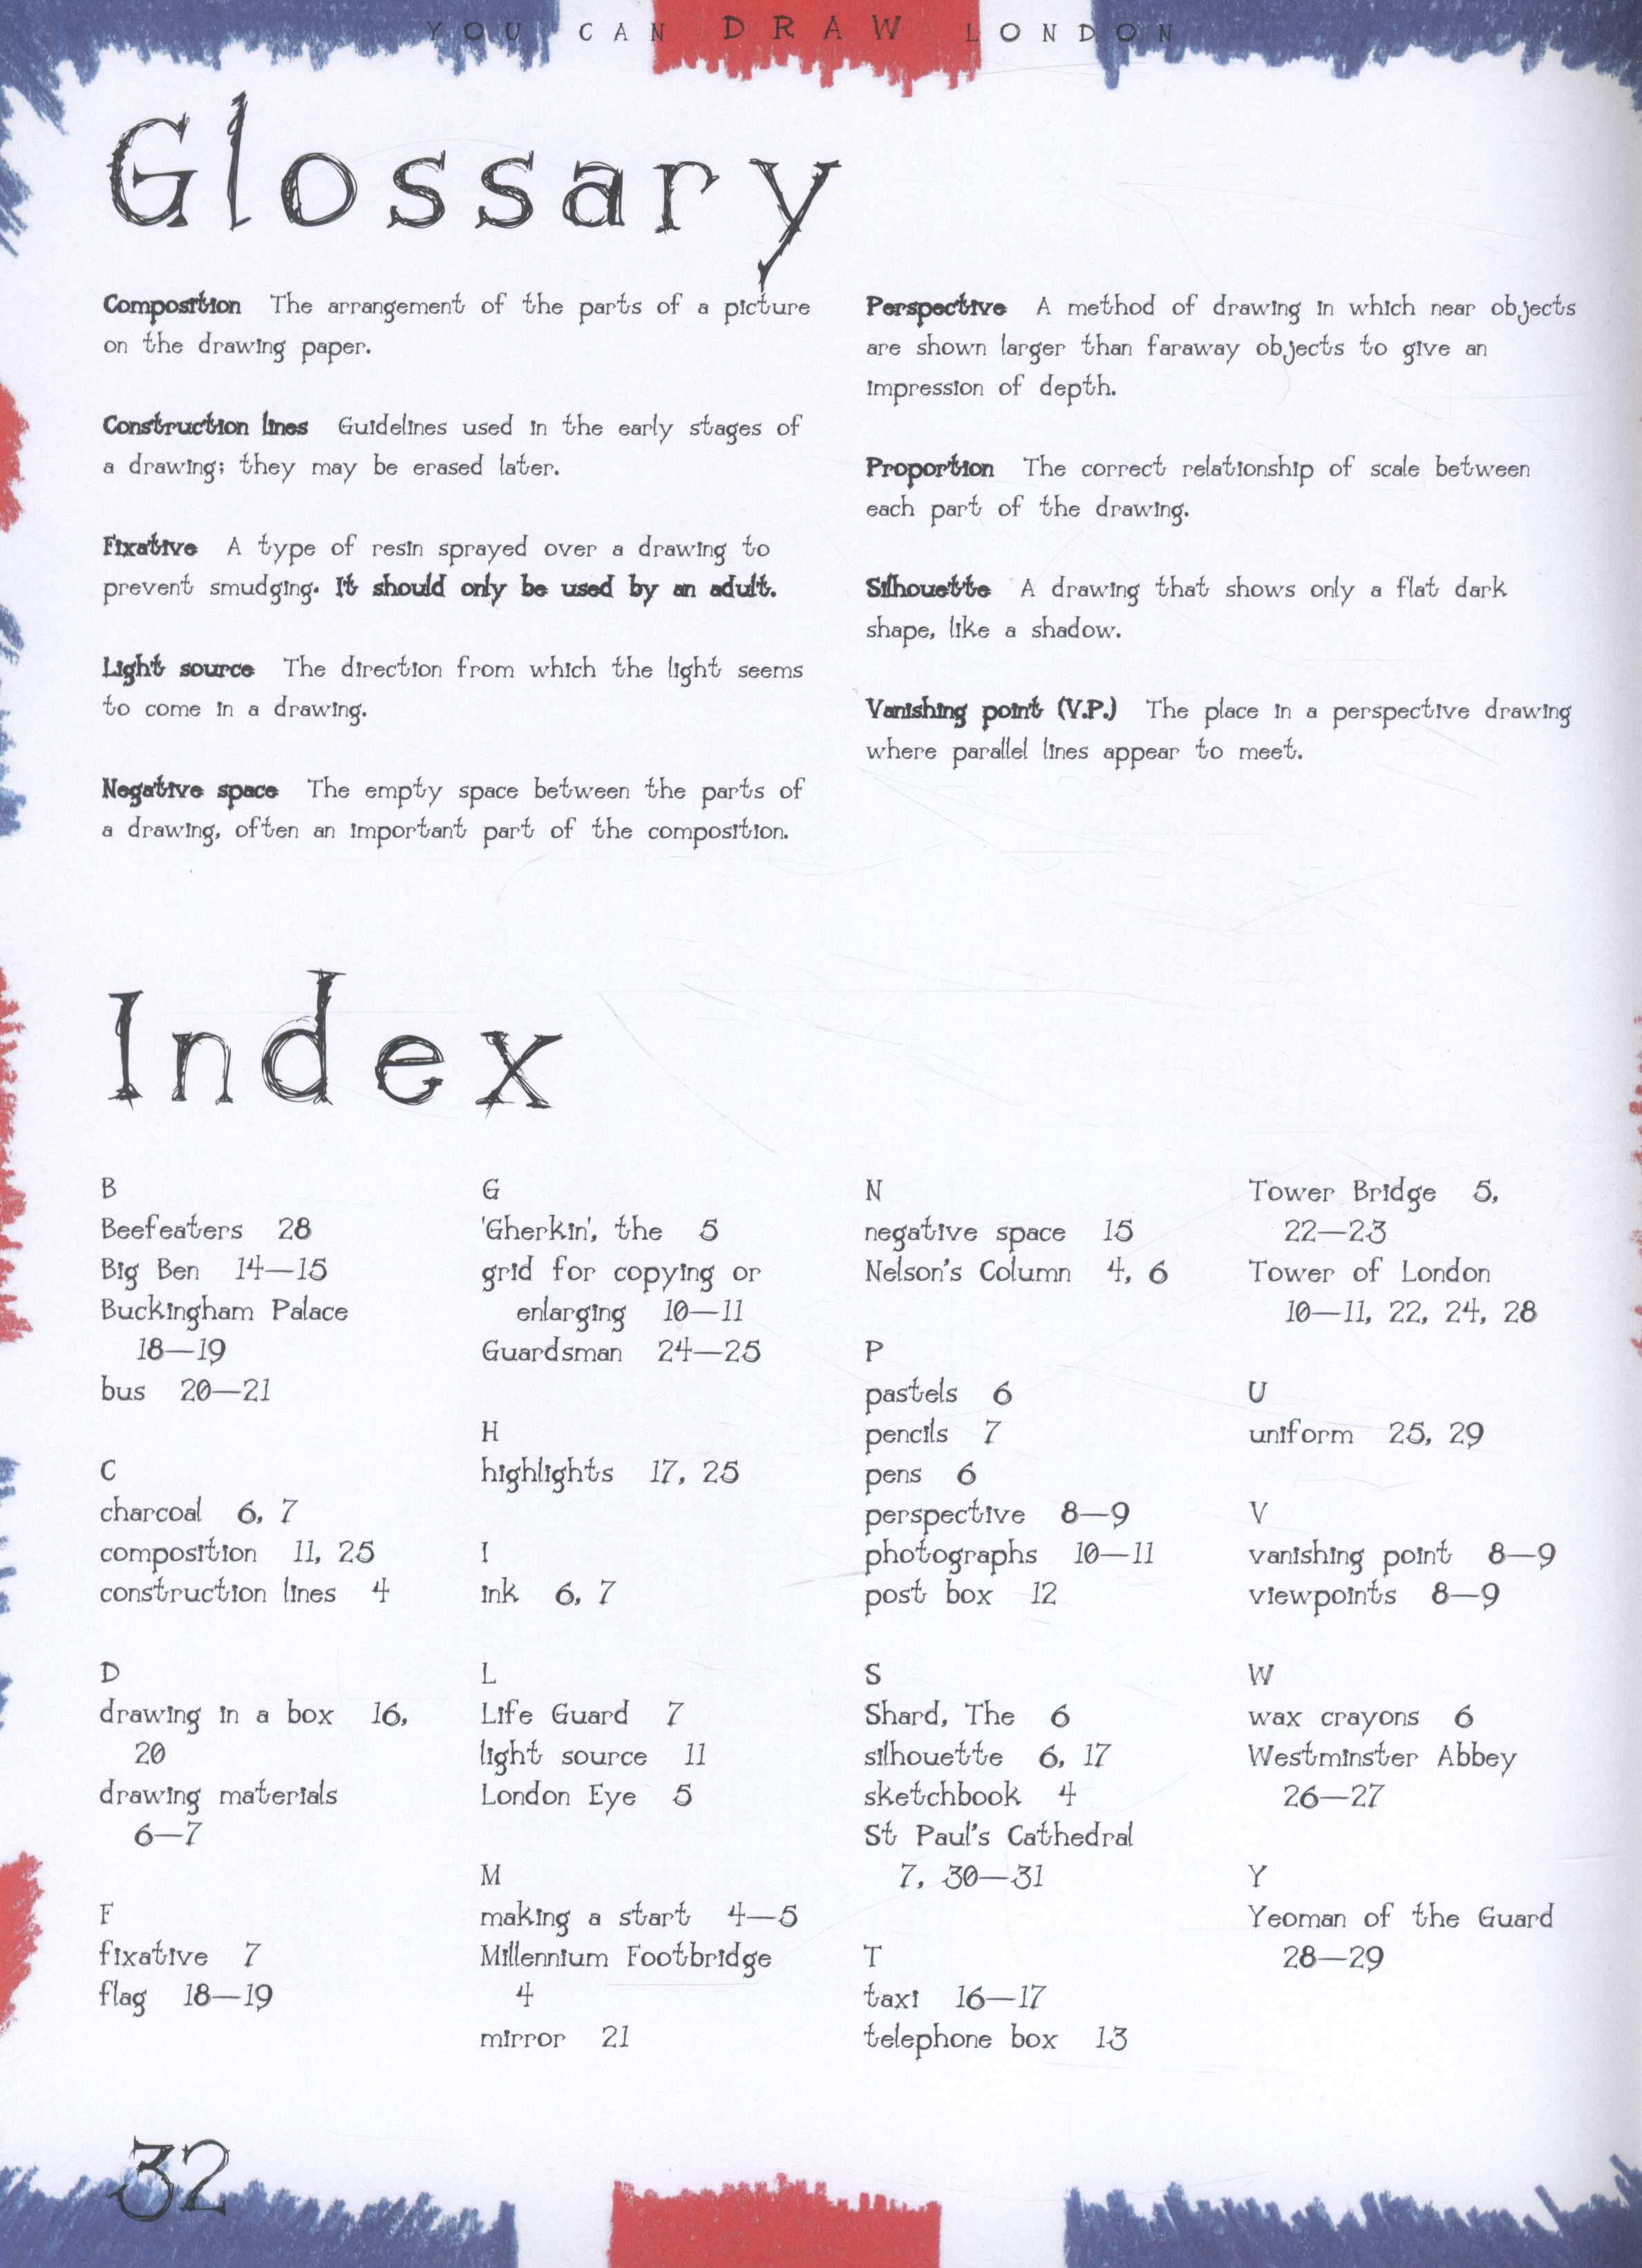 YOU CAN DRAW LONDON
Glossary
Composition The arrangement of the parts of a picture
on the drawing paper.
Construction lines Guidelines used in the early stages of
a drawing; they may be erased later.
Fixative A type of resin sprayed over a drawing to
prevent smudging. It should only be used by an adult.
Light source The direction from which the light seems
to come in a drawing.
Negative space The empty space between the parts of
a drawing, often an important part of the composition.
Perspective A method of drawing in which near objects
are shown larger than faraway objects to give an
impression of depth.
Proportion The correct relationship of scale between
each part of the drawing.
Silhouette A drawing that shows only a flat dark
shape, like a shadow.
Vanishing point (V.P.) The place in a perspective drawing
where parallel lines appear to meet.
Index
B
Beefeaters 28
Big Ben 14—15
Buckingham Palace
18—19
bus 20—21
C
charcoal 6, 7
composition 11, 25
construction lines 4
D
drawing in a box 16,
20
drawing materials
6—7
F
fixative 7
flag 18—19
G
'Gherkin', the 5
grid for copying or
enlarging 10—11
Guardsman 24—25
H
highlights 17, 25
I
ink 6, 7
L
Life Guard 7
light source 11
London Eye 5
M
making a start 4—5
Millennium Footbridge
4
mirror 21
N
negative space 15
Nelson's Column 4, 6
P
pastels 6
pencils 7
pens 6
perspective 8—9
photographs 10—11
post box 12
S
Shard, The 6
silhouette 6, 17
sketchbook 4
St Paul's Cathedral
7, 30—31
T
taxi 16—17
telephone box 13
Tower Bridge 5,
22—23
Tower of London
10—11, 22, 24, 28
U
uniform 25, 29
V
vanishing point 8—9
viewpoints 8—9
W
wax crayons 6
Westminster Abbey
26—27
Y
Yeoman of the Guard
28—29
32